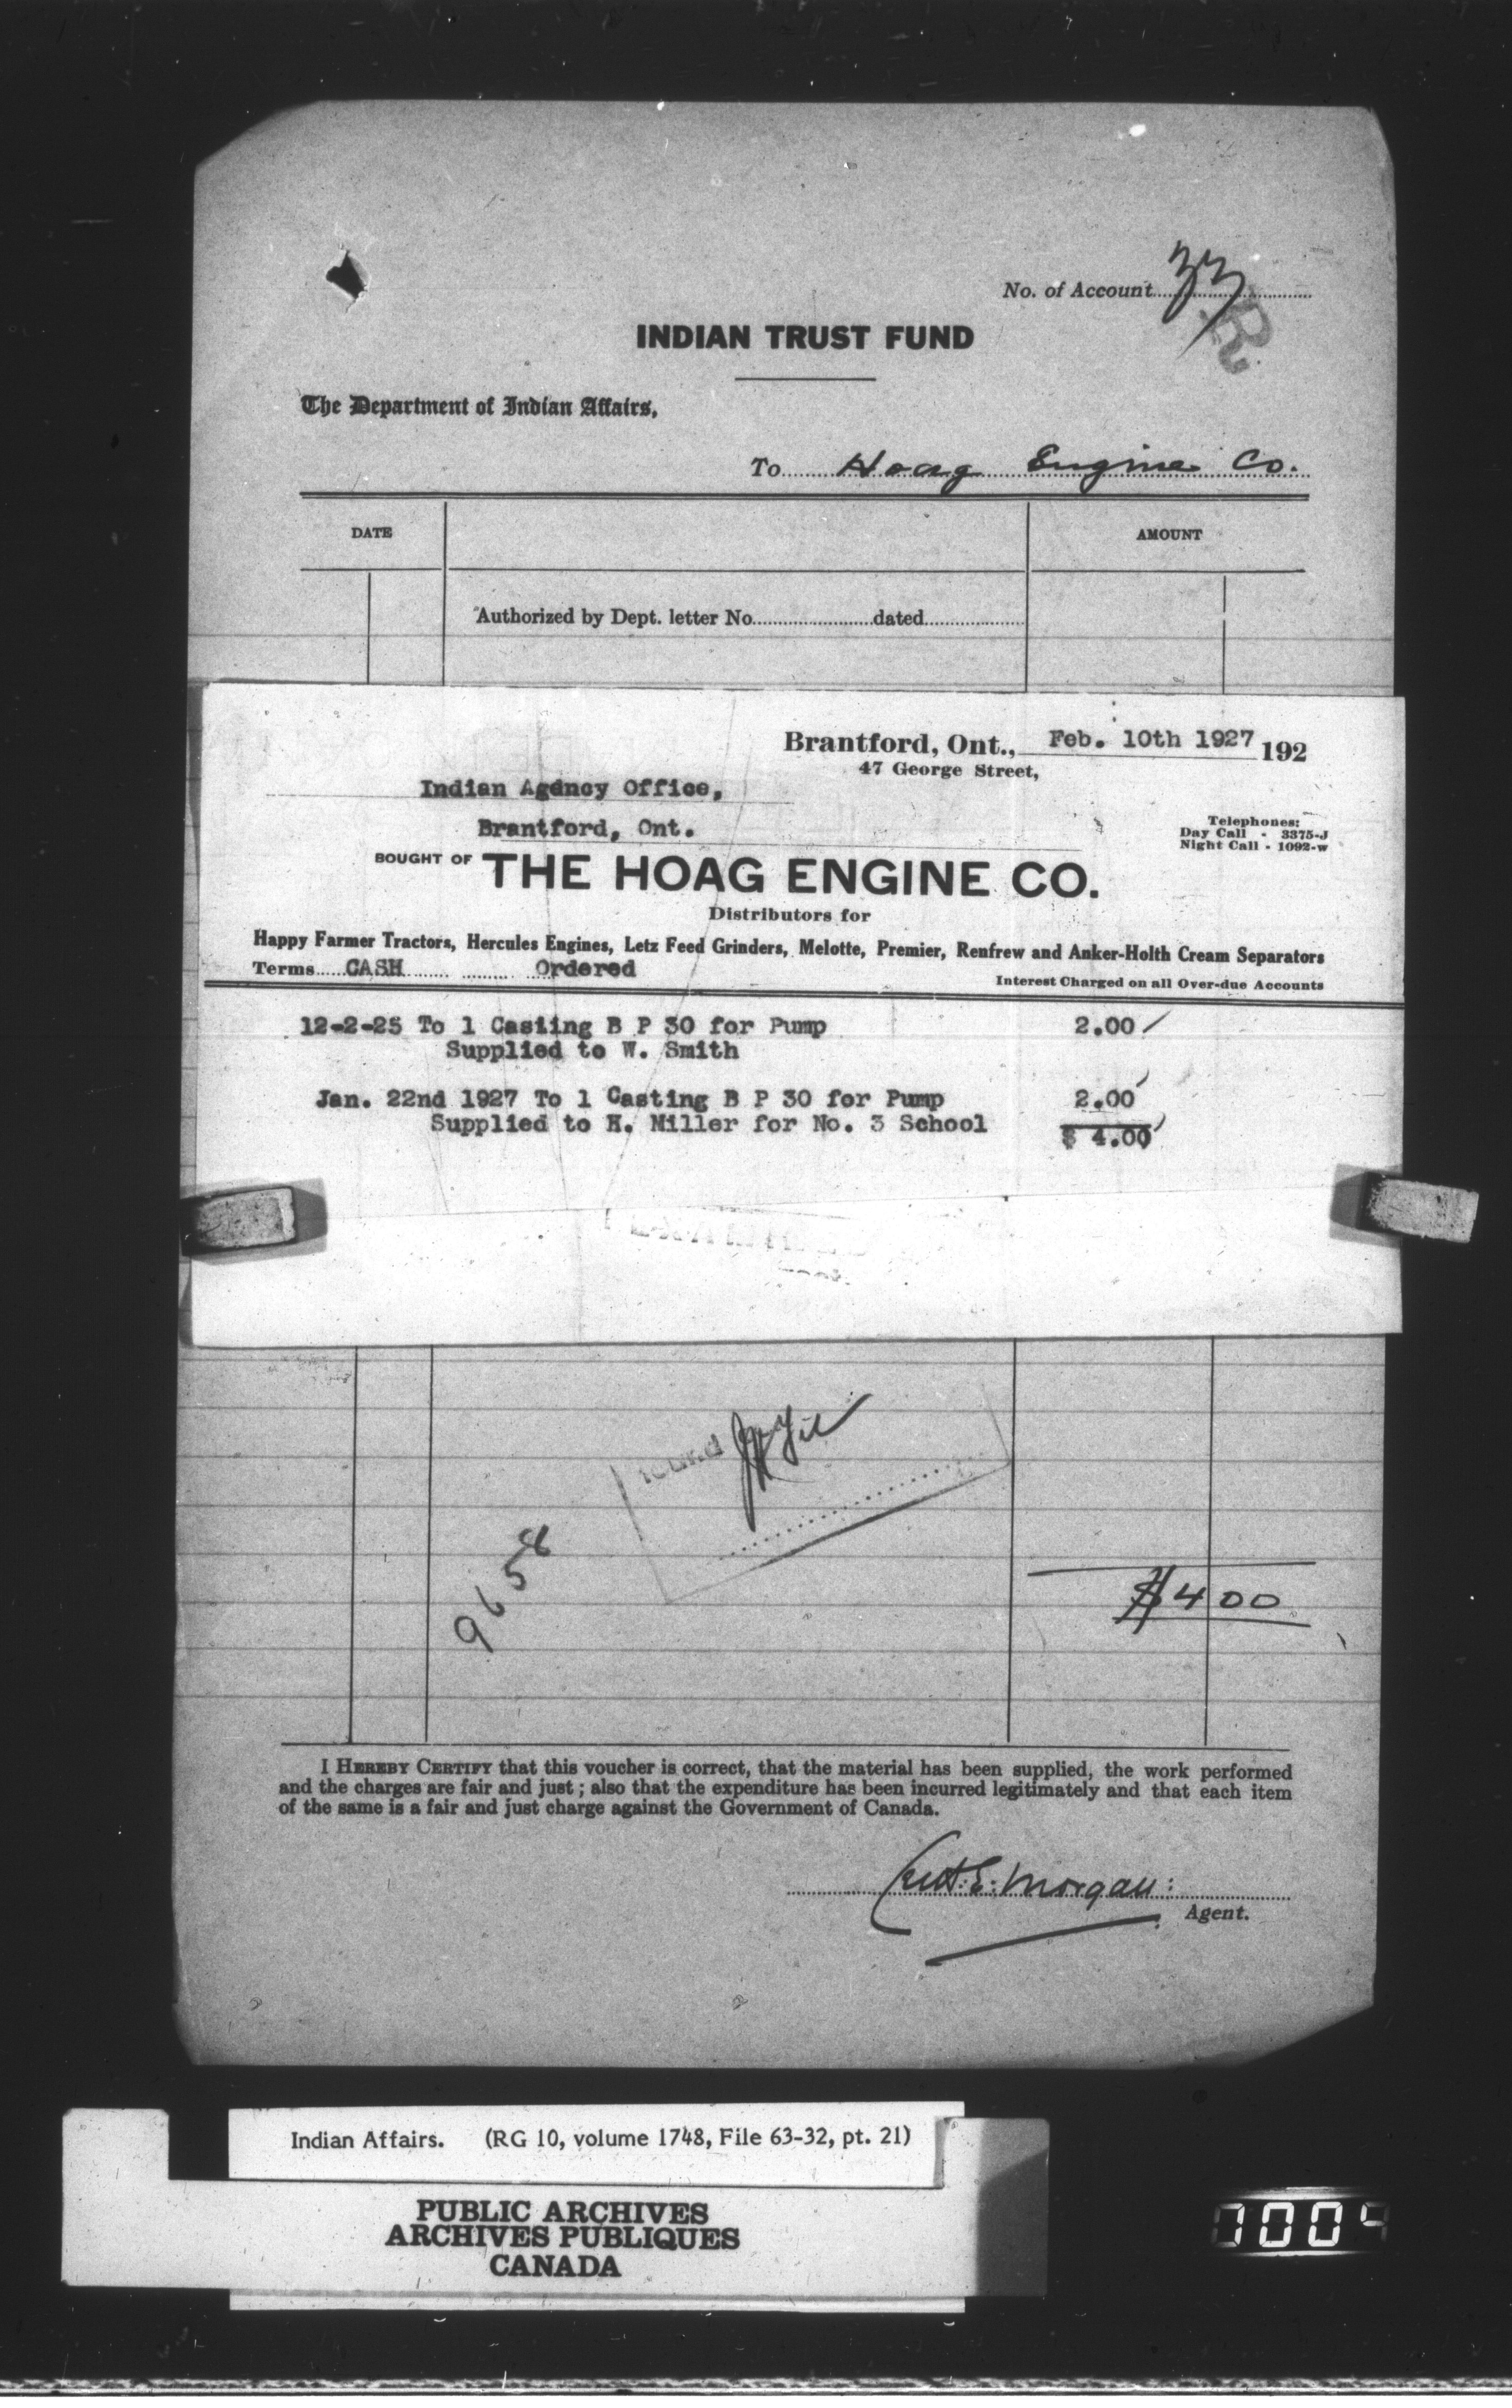 No. of Account 33
R
INDIAN TRUST FUND
The Department of Indian Affairs,
To Hoag Engine Co.
DATE AMOUNT
Authorized by Dept. letter No. dated
Brantford, Ont., Feb. 10th 1927 192
47 George Street,
Indian Agency Office,
Brantford, Ont.
Telephones:
Day Call - 3375-J
Night Call - 1092-w
BOUGHT OF THE HOAG ENGINE CO.
Distributors for
Happy Farmer Tractors, Hercules Engines, Letz Feed Grinders, Melotte, Premier, Renfrew and Anker-Holth Cream Separators
Terms CASH Ordered
Interest Charged on all Over-due Accounts
12-2-25 To 1 Casting B P 30 for Pump 2.00
Supplied to W. Smith
Jan. 22nd 1927 To 1 Casting B P 30 for Pump 2.00
Supplied to H. Miller for No. 3 School
$ 4.00
9658
$4 00
I HEREBY CERTIFY that this voucher is correct, that the material has been supplied, the work performed
and the charges are fair and just; also that the expenditure has been incurred legitimately and that each item
of the same is a fair and just charge against the Government of Canada.
E. Morgan
Agent.
Indian Affairs. (RG 10, volume 1748, File 63-32, pt. 21)
PUBLIC ARCHIVES
ARCHIVES PUBLIQUES
CANADA